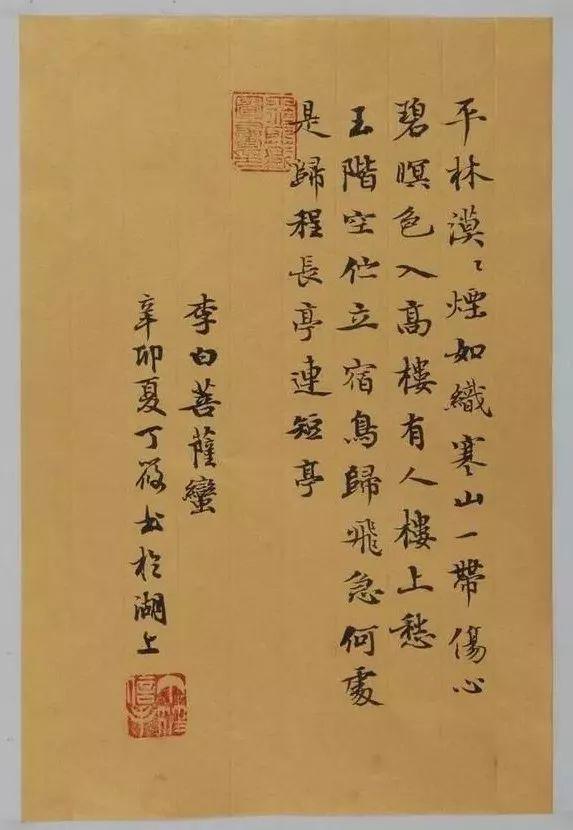 平林漠〻煙如織寒山一帶傷心
碧暝色入高樓有人樓上愁
玉階空伫立宿鳥歸飛急何處
是歸程長亭連短亭
李白菩薩蠻
辛卯夏丁筱書於湖上